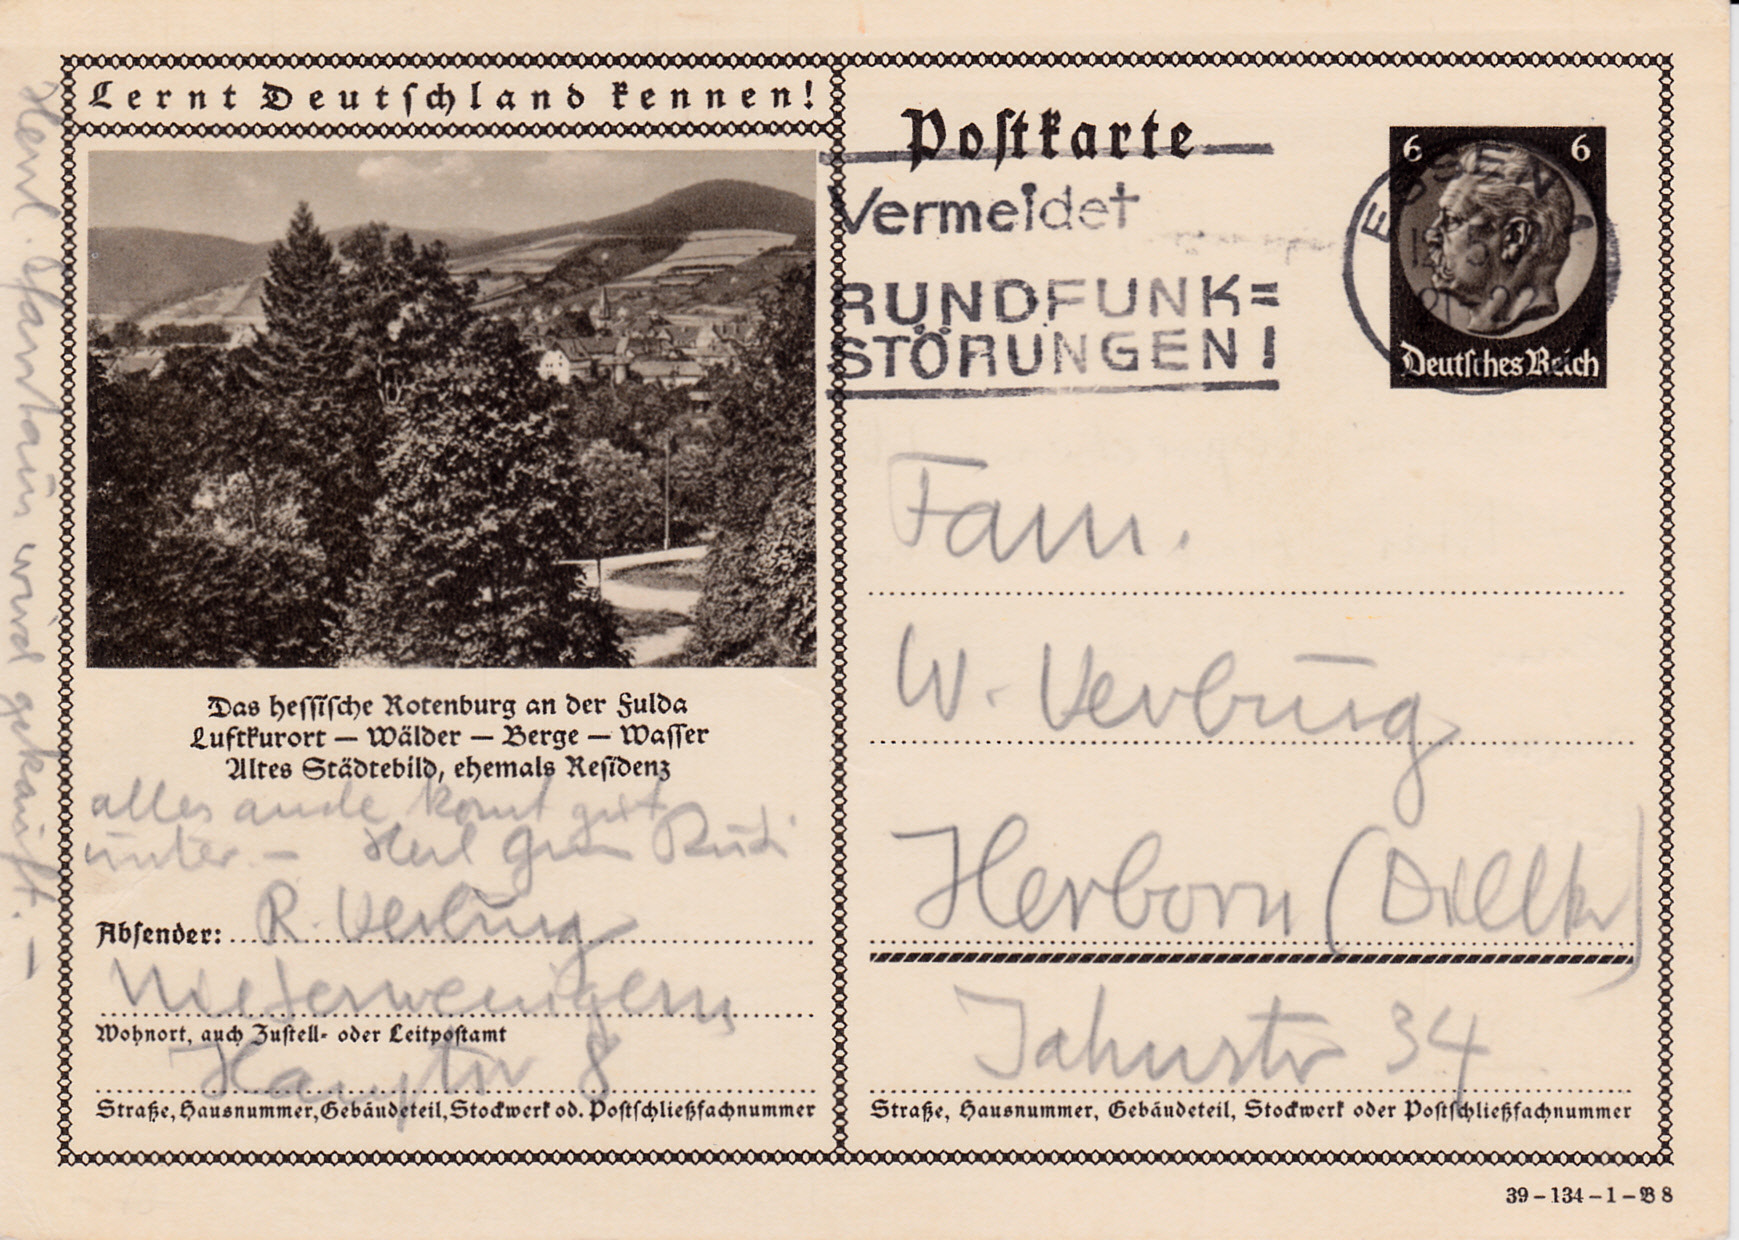 Lernt Deutschland kennen!
Das hessische Rotenburg an der Fulda
Luftkurort – Wälder – Berge – Wasser
Altes Städtebild, ehemals Residenz
alles ande komt gut
unter. – Rudi
Absender: R. Verburg
Niederwenigern
Wohnort, auch Zustell- oder Leitpostamt
Hauptstr 8
Straße, Hausnummer, Gebäudeteil, Stockwerk od. Postschließfachnummer
wird gekauft. –
Postkarte
Vermeidet
RUNDFUNK=
STÖRUNGEN!
6 6
ESSEN
Deutsches Reich
Fam.
W. Verburg
Herborn (Dillkr)
Jahnstr 34
Straße, Hausnummer, Gebäudeteil, Stockwerk oder Postschließfachnummer
39 – 134 – 1 – B 8